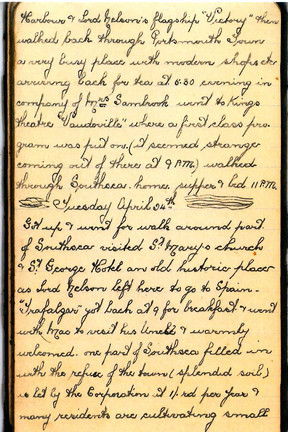 Harbour & Lord Nelson's flagship "Victory" then
walked back through Portsmouth Town
a very busy place with modern shops etc
arriving back for tea at 5.30 evening in
company of Mrs Sambrook went to Kings
Theatre "Vaudoville" where a first class pro-
gram was put on, (it seemed stranger
coming out of there at 9 P.M.) walked
through Southsea home supper & bed 11 P.M.
Tuesday April 24th
Got up & went for walk around part
of Southsea visited St Mary's church
& St George Hotel an old historic place
as Lord Nelson left here to go to Spain-
"Trafalgar" got back at 9 for breakfast & went
with Mac to visit his Uncle & warmly
welcomed. one part of Southsea filled in
with the refuse of the town (splendid soil)
is let by the Corporation at 1/- rd per year &
many residents are cultivating small